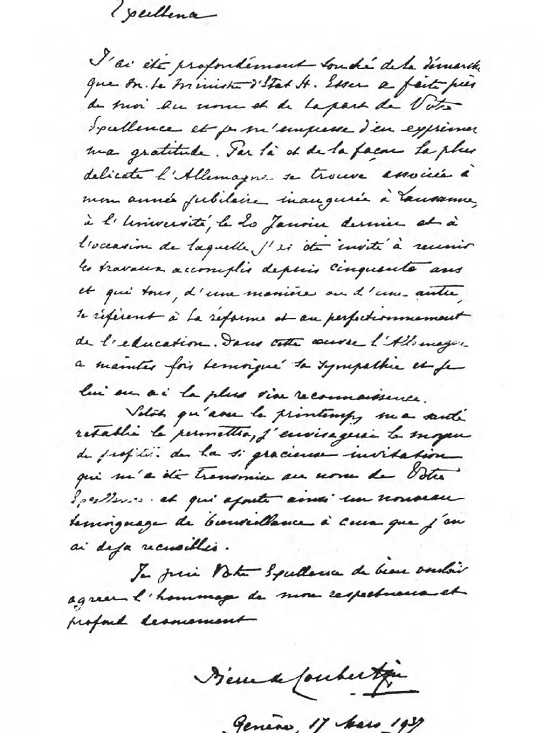 Excellence
J'ai été profondément touché de la démarche
que M. le Ministre d'Etat H. Esser a faite près
de moi au nom et de la part de Votre
Excellence et je m'empresse d'en exprimer
ma gratitude. Par là et de la façon la plus
délicate l'Allemagne se trouve associée à
mon année jubilaire inaugurée à Lausanne,
à l'Université, le 20 Janvier dernier et à
l'occasion de laquelle j'ai été invité à réunir
les travaux accomplis depuis cinquante ans
et qui tous, d'une manière ou d'une autre,
se réfèrent à la réforme et au perfectionnement
de l'éducation. Dans cette œuvre l'Allemagne
a maintes fois témoigné sa sympathie et je
lui en ai la plus vive reconnaissance.
qu'avec le printemps, ma santé
rétablie le permettra, j'envisagerai le moyen
de profiter de la si gracieuse invitation
qui m'a été transmise au nom de Votre
Excellence et qui ajoute ainsi un nouveau
témoignage de bienveillance à ceux que j'en
ai déjà recueillis.
Je prie Votre Excellence de bien vouloir
agréer l'hommage de mon respectueux et
profond dévouement
Pierre de Coubertin
Genève, 17 Mars 1937